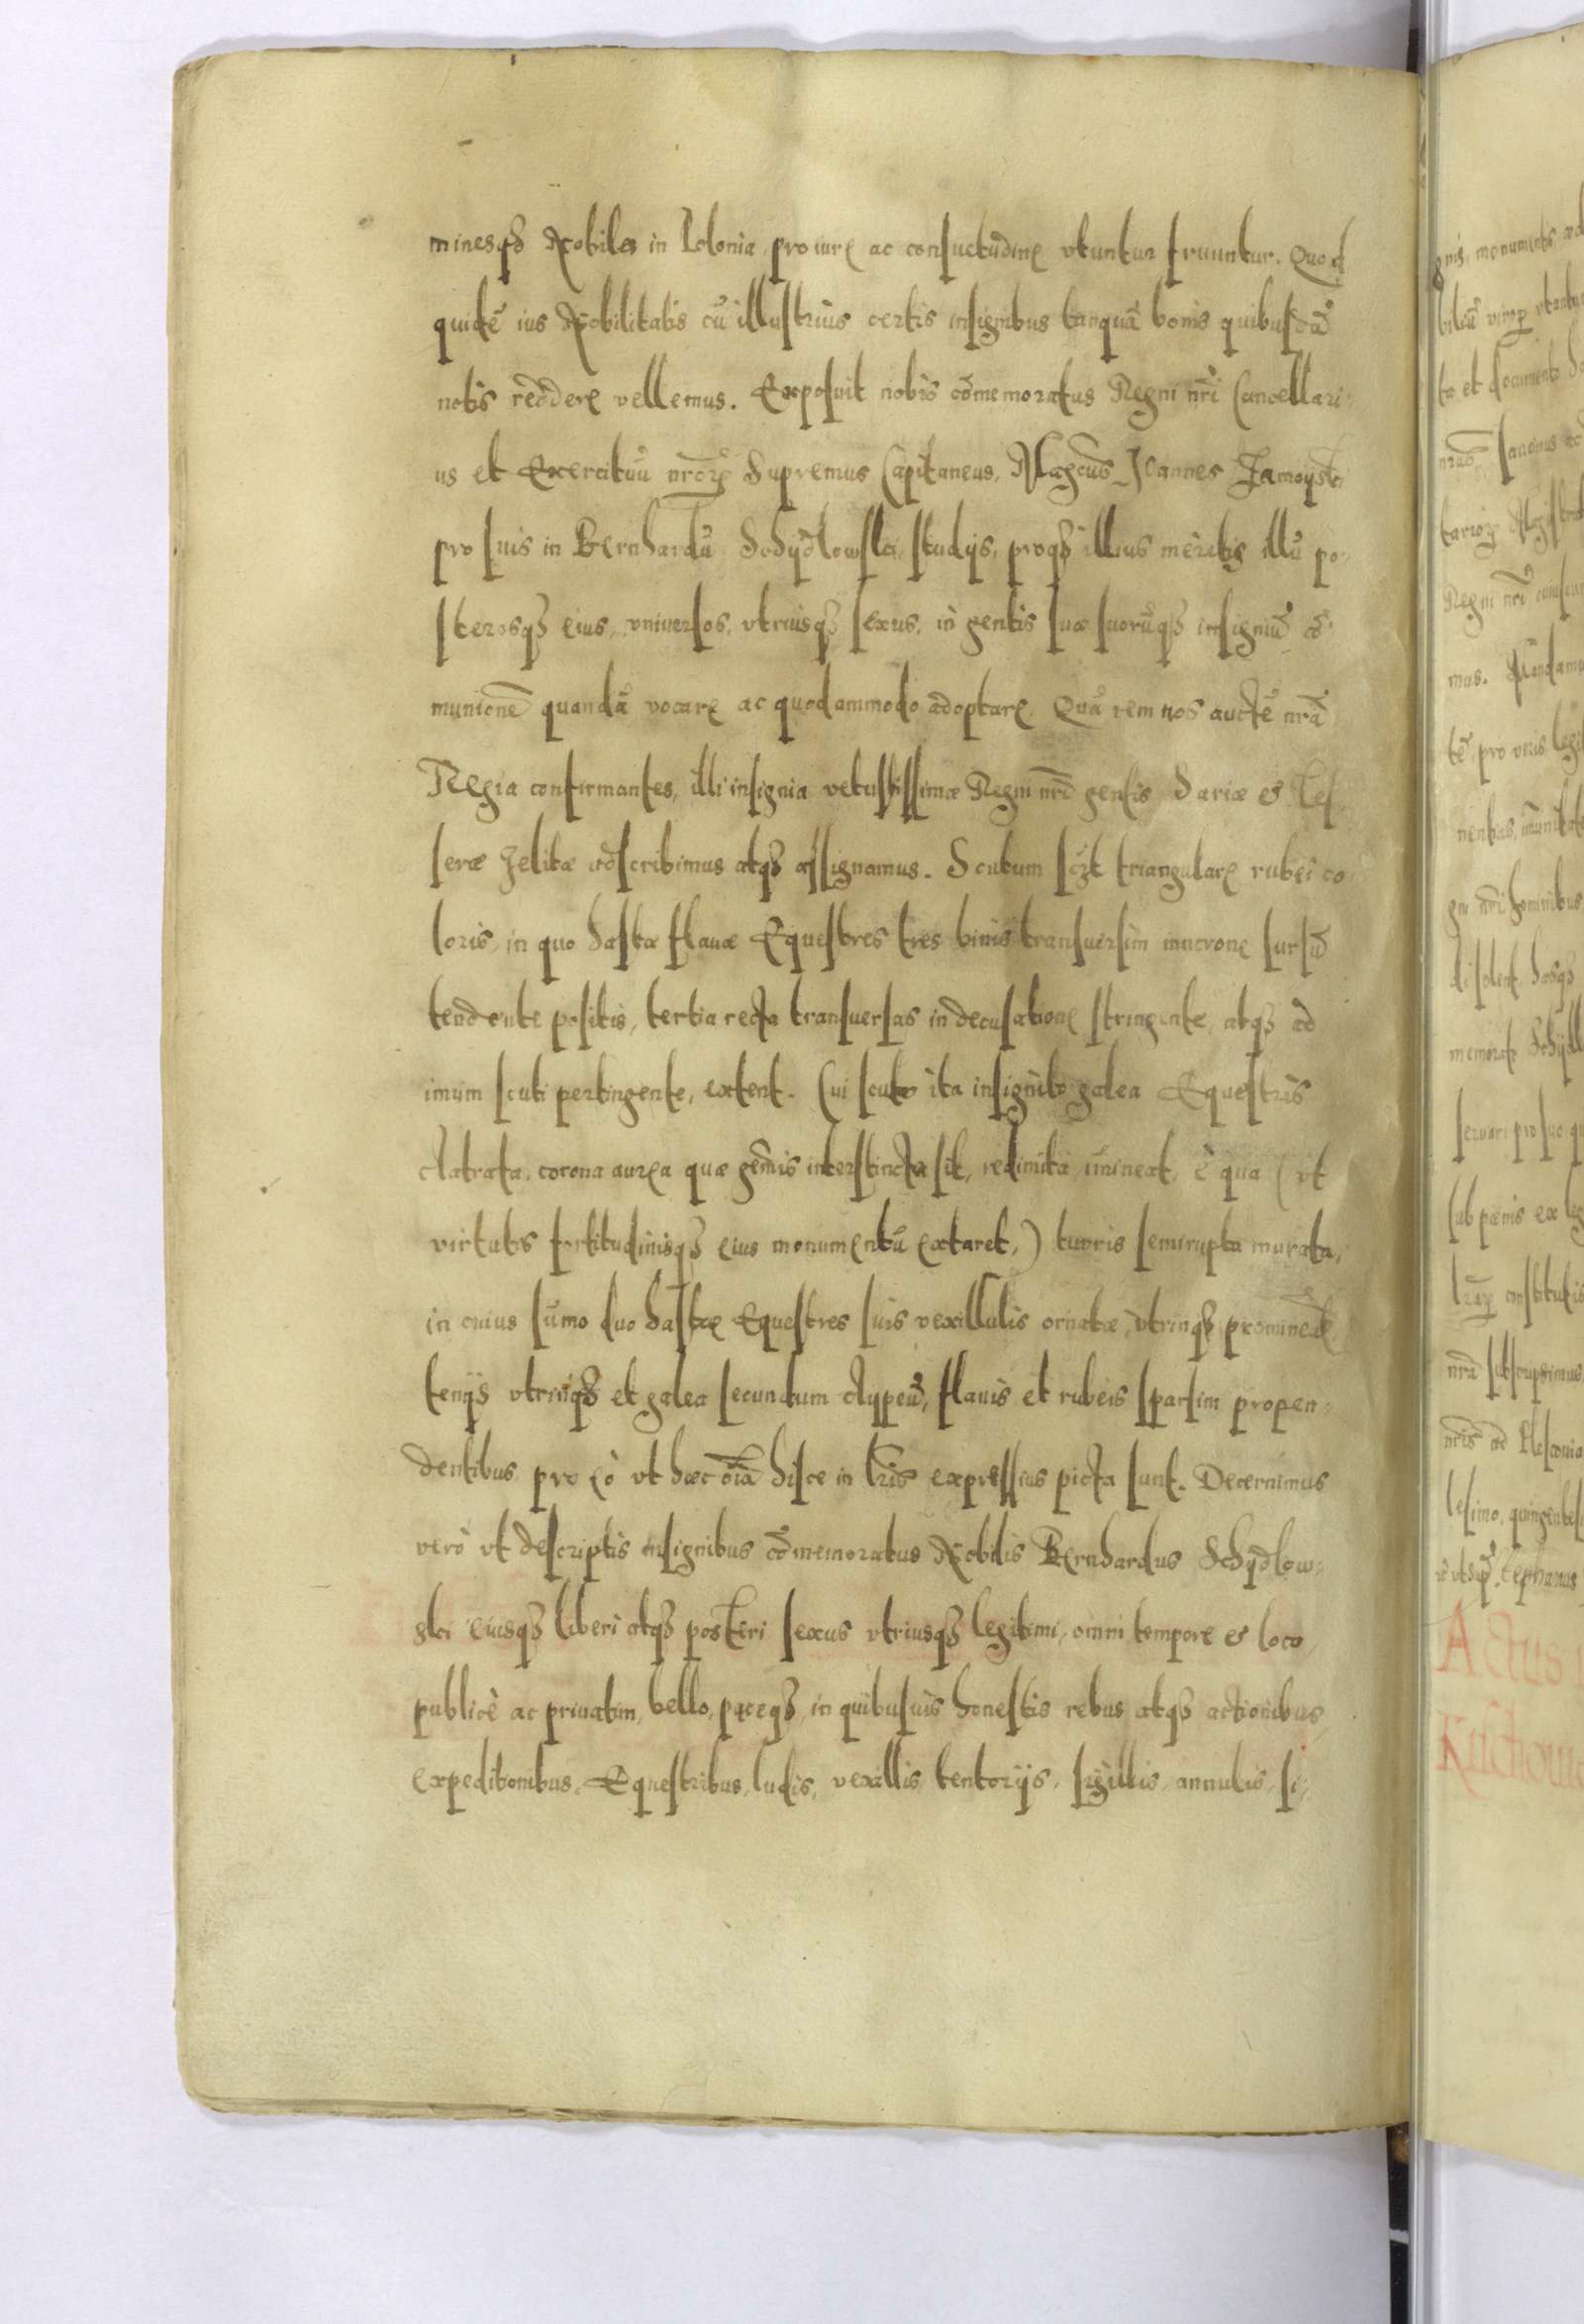 minesqȝ Nobiles in Polonia, pro iure ac consuetudine vtuntur fruuntur. Quod
quidē ius Nobilitatis cū illustrius certis insignibus tanquā bonis quibusdā
notis reddere vellemus. Exposuit nobis cōmemoratus Regni nri Cancellari-
us et Exercituū nrorꝝ Supremus Capitaneus, Magcus Joannes Zamoyski
pro suis in Bernhardū Schÿdlowski studijs, proqȝ illius meritis illū po-
sterosqȝ eius, vniuersos, vtriusqȝ sexus, in gentis suæ suorūqȝ insigniū cō-
munionē quandā vocare ac quodammodo adoptare. Quā rem nos aucte nrā
Regia confirmantes, illi insignia vetustissimæ Regni nri gentis Sariæ et Tes-
seræ Jelitæ adscribimus atqȝ assignamus. Scutum sczt triangulare rubei co-
loris, in quo hastæ flauæ Equestres tres binis transuersim mucrone sursū
tendente positis, tertia recta transuersas in decusatione stringente, atqȝ ad
imum scuti pertingente, extent. Cui scuto ita insignito galea Equestris
clatrata, corona aurea quæ gem̄is interstincta sit, redimita im̄ineat, è qua (vt
virtutis fortitudinisqȝ eius monumentū extaret,) turris semirupta murata,
in cuius sūmo duo hastæ Equestres suis vexillulis ornatæ, vtrinqȝ promineāt
tenijs vtrinqȝ et galea secundum clypeū, flauis et rubeis sparsim propen-
dentibus, pro eò vt hæc oīa hisce in lris expressius picta sunt. Decernimus
verò vt descriptis insignibus cōmemoratus Nobilis Bernhardus Schÿdlow-
ski eiusqȝ liberi atqȝ posteri sexus vtriusqȝ legitimi, omni tempore et loco,
publicè ac priuatim, bello, paceqȝ, in quibusuis honestis rebus atqȝ actionibus,
expeditionibus, Equestribus, ludis, vexillis, tentorijs, sigillis, annulis, si-
gnis, monumentis
Regni nri
mus.
tē pro veris
gni nri hominibus
di solent, hosqȝ
memorati
seruari pro suo
sub pœnis ex
nrā subscripsimus
lesimo, quingentes
Actus